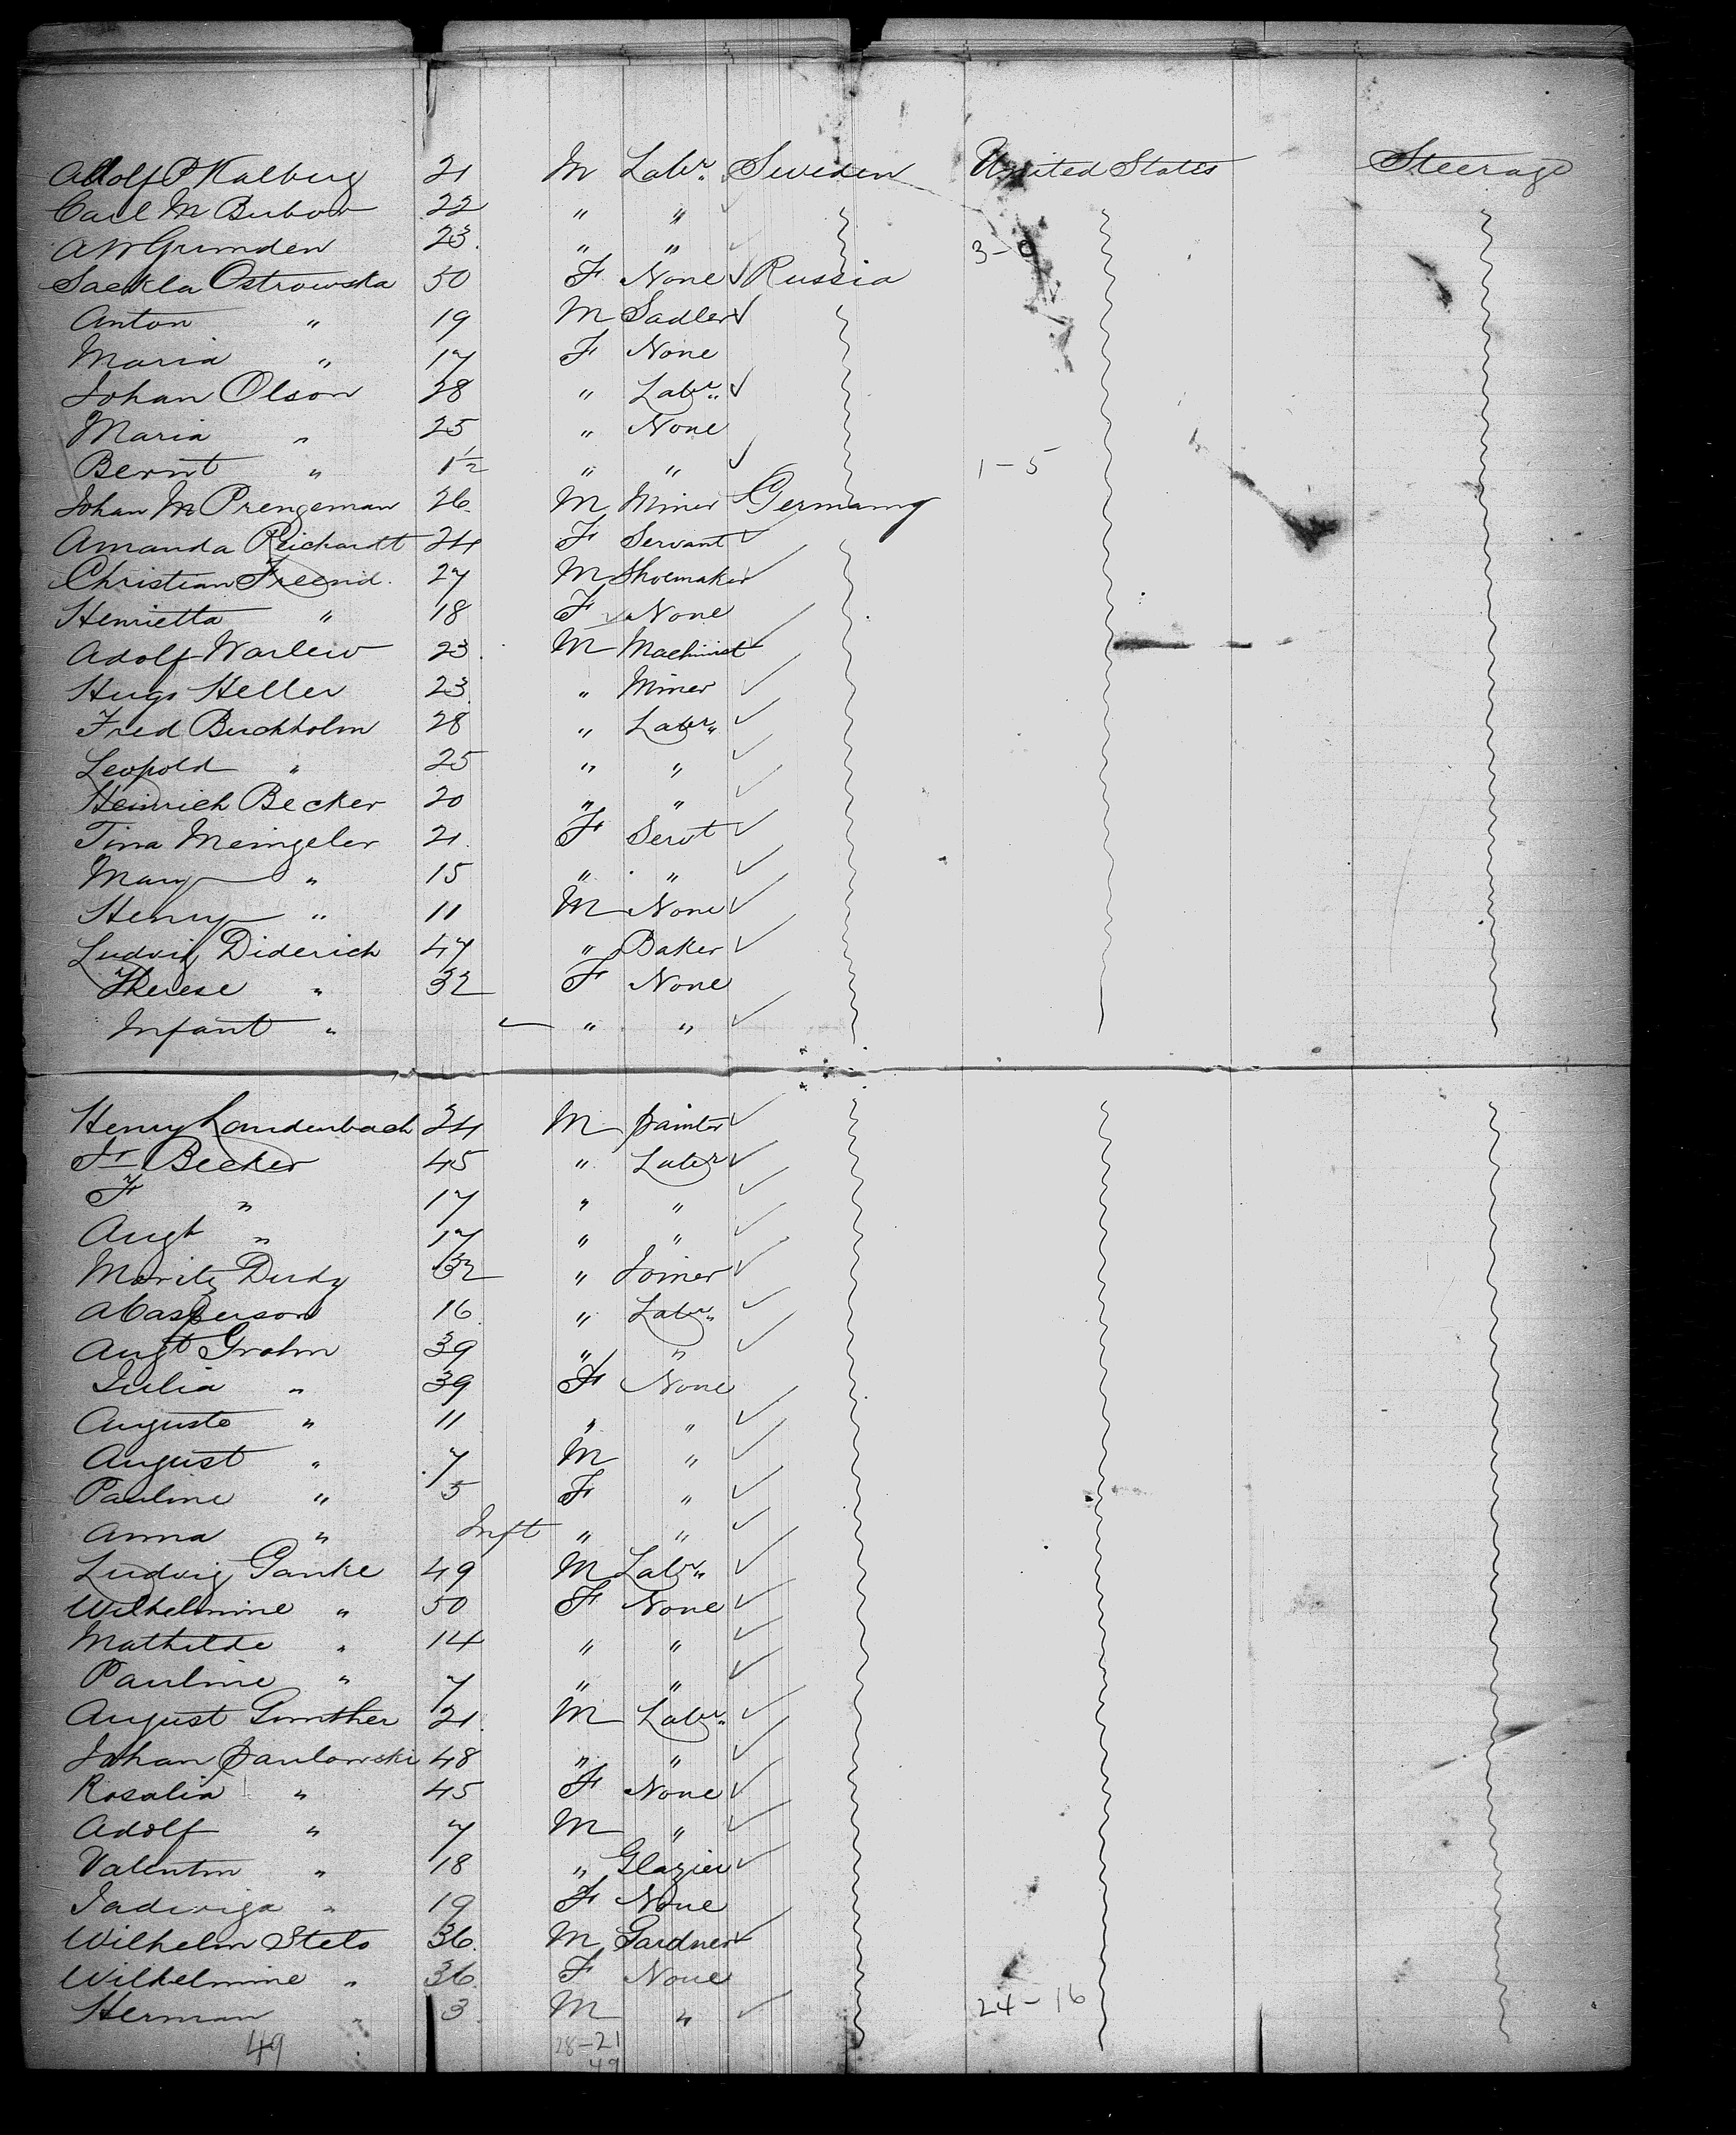 Adolf P Kalberg 21 M Labr. Sweden United States Steerage
Carl M Bubow 22 " "
A W Grimden 23. " " 3-0
Saekla Ostrowska 50 F None Russia
Anton " 19 M Sadler
Maria " 17 F None
Johan Olson 28 " Labr.
Maria " 25 " None
Bernt " 1½ " " 1-5
Johan M Prengeman 26. M Miner Germany
Amanda Reichardt 24 F Servant
Christian Freend. 27 M Shoemaker
Henrietta " 18 F None
Adolf Warlew 23. M Machinist
Hugo Heller 23. " Miner
Fred Buchholm 28 " Labr.
Leopold " 25 " "
Heinrich Becker 20 " "
Tina Meingeler 21. F Servt
Mary " 15 " "
Henry " 11 M None
Ludvig Diderich 47 " Baker
Therese " 32 F None
Infant " " "
Henry Landenbach 24 M painter
Fr Becker 45 " Labr
F " 17 " "
Augt " 17 " "
Moritz Dudy 32 " Joiner
A Casperson 16. " Labr.
Augt Grohn 39 " "
Julia " 39 F None
Auguste " 11 " "
August " 7 M "
Pauline " 5 F "
Anna " Inft " "
Ludvig Ganke 49 M Labr.
Wilhelmine " 50 F None
Mathilde " 14 " "
Pauline " 7 " "
August Gunther 21. M Labr.
Johan paulowski 48 " "
Rosalia " 45 F None
Adolf " 7 M "
Valentin " 18 " Glazier
Jadwiga " 19 F None
Wilhelm Stelo 36. M Gardner
Wilhelmine " 36. F None
Herman " 3. M " 24-16
49 28-21
49